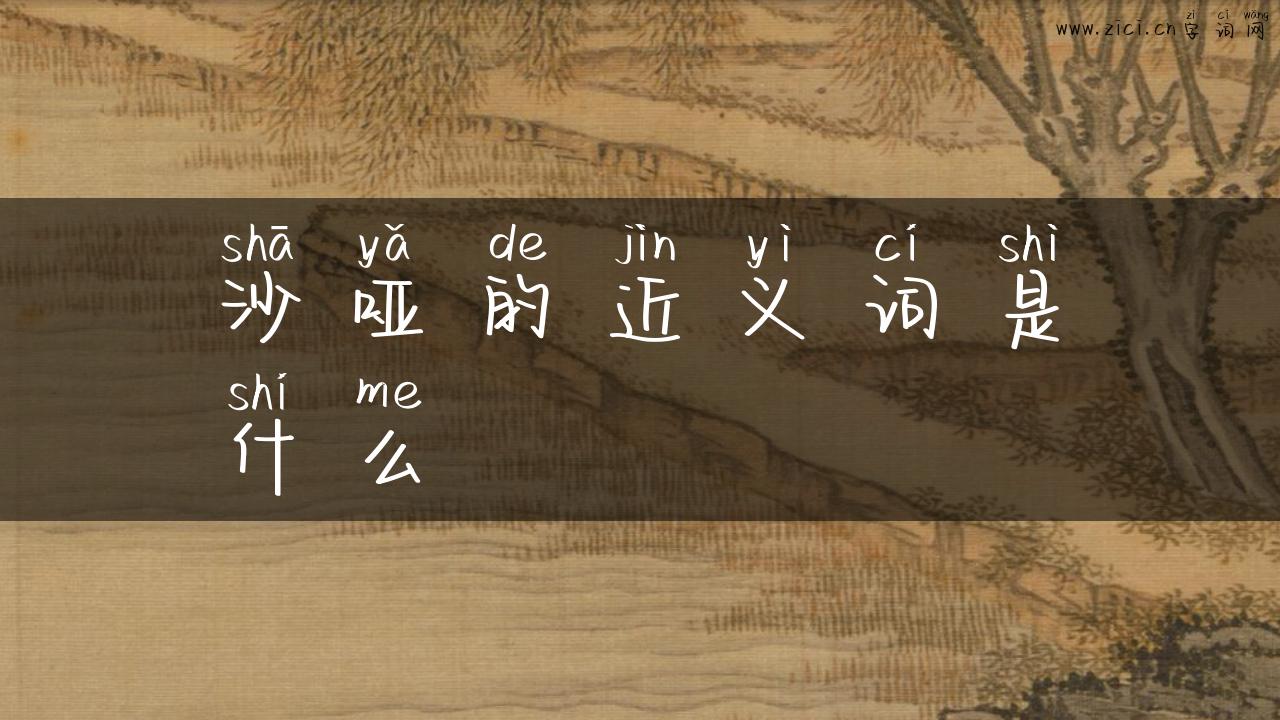 zì cí wǎng
www.zici.cn字词网
shā yǎ de jìn yì cí shì
沙哑的近义词是
shí me
什么